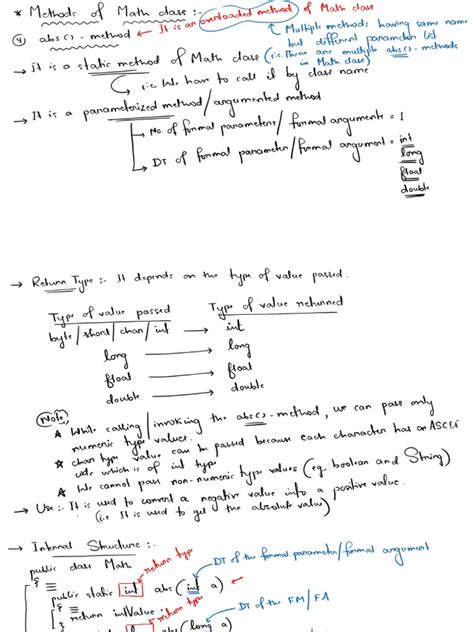 * Methods of Math class :-
④ abs() - method ← It is an overloaded method of Math class
↳ Multiple methods having same name but different parameter list
(i.e. There are multiple abs() - methods in Math class)
→ It is a static method of Math class
↳ i.e. We have to call it by class name
→ It is a parameterized method / argumented method
→ No. of formal parameters / formal arguments = 1
→ DT of formal parameter / formal argument = int
long
float
double
→ Return Type :- It depends on the type of value passed.
Type of value passed Type of value returned
byte / short / char / int → int
long → long
float → float
double → double
Note
★ While calling / invoking the abs() - method, we can pass only numeric type values.
★ char type value can be passed because each character has an ASCII code which is of int type
★ We cannot pass non-numeric type values (eg. boolean and String)
→ Use :- It is used to convert a negative value into a positive value.
(i.e It is used to get the absolute value)
→ Internal Structure :-
public class Math
return type
DT of the formal parameter / formal argument
{ ≡
public static int abs( int a) ←
{ ≡
return intValue; return type
DT of the FM / FA
long abs( long a)